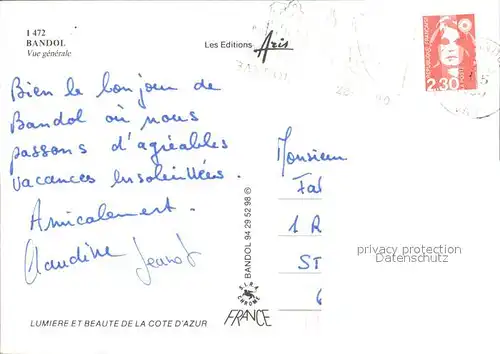 I 472
BANDOL
Vue générale
Les Editions Aris
REPUBLIQUE FRANÇAISE
2,30
Bien le bonjour de
Bandol où nous
passons d'agréables
vacances ensoleillées.
Amicalement.
Claudine Jeanot
Monsieur
Fal
1 R
ST
6
privacy protection
Datenschutz
BANDOL 94 29 52 98 ©
S.I.R.A.
CHROME
FRANCE
LUMIERE ET BEAUTE DE LA COTE D'AZUR